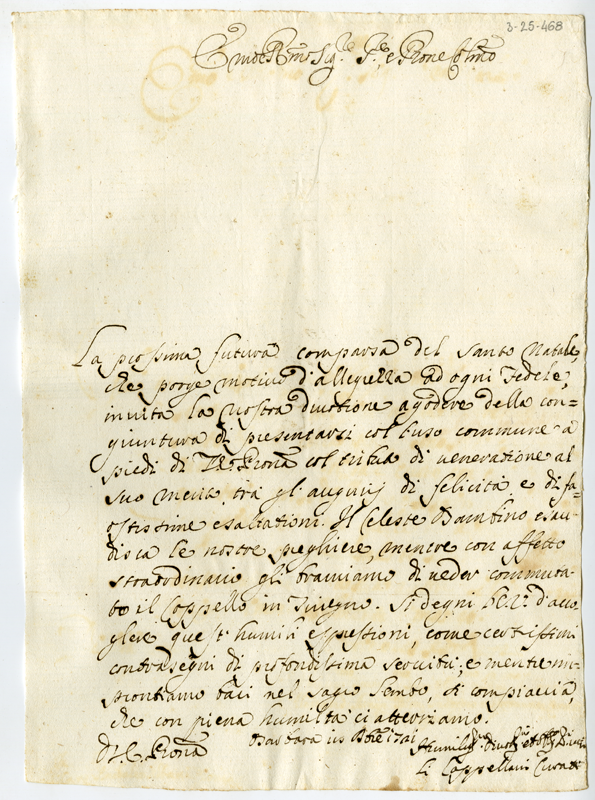 3-25-468
Sig.re P.re, e Prone
La prossima futura comparsa del Santo Natale,
che porge motivo d'allegrezza ad ogni Fedele,
invita la nostra divotione a godere della con=
giuntura di presentarsi col luso commune a
piedi di col tributo di veneratione al
suo merito trà gl'augurij di felicità e di fa=
ostissime esaltationi. Il Celeste Bambino esau=
disca le nostre preghiere, mentre con affetto
straordinario gli bramiamo di veder commuta=
to il Cappello in Triregno. Si degni d'acco=
gliere quest'humili espressioni, come certissimi
contrasegni di profondissima servitù; e mentre im=
prontiamo baci nel sagro Lembo, si compiaccia,
che con piena humiltà ci atterriamo.
Barbara 1721
Li Cappellani Curati